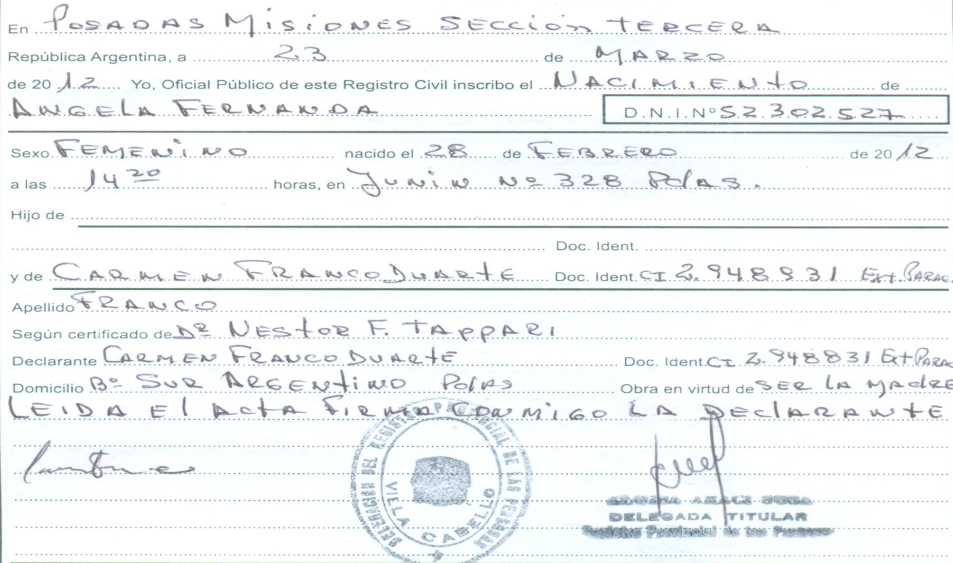 En POSADAS MISIONES SECCIÓN TERCERA
República Argentina, a 23 de MARZO
de 2012 Yo, Oficial Público de este Registro Civil inscribo el NACIMIENTO de
ANGELA FERNANDA D.N.I.Nº 52.302.527
Sexo FEMENINO nacido el 28 de FEBRERO de 2012
a las 14 20 horas, en JUNIN Nº 328 Pdas.
Hijo de
Doc. Ident.
y de CARMEN FRANCO DUARTE Doc. Ident. CI 2.948831 Ext. PARAG.
Apellido FRANCO
Según certificado de Dº NESTOR F. TAPPARI
Declarante CARMEN FRANCO DUARTE Doc. Ident. CI 2.948831 Ext PARAG
Domicilio Bº SUR ARGENTINO Pdas Obra en virtud de SER LA MADRE
LEIDA El ACTA FIRMA CONMIGO LA DEClARANTE
DELEGACION DEL REGISTRO PROVINCIAL DE LAS PERSONAS
VILLA CABELLO
DELEGADA TITULAR
Registro Provincial de las Personas